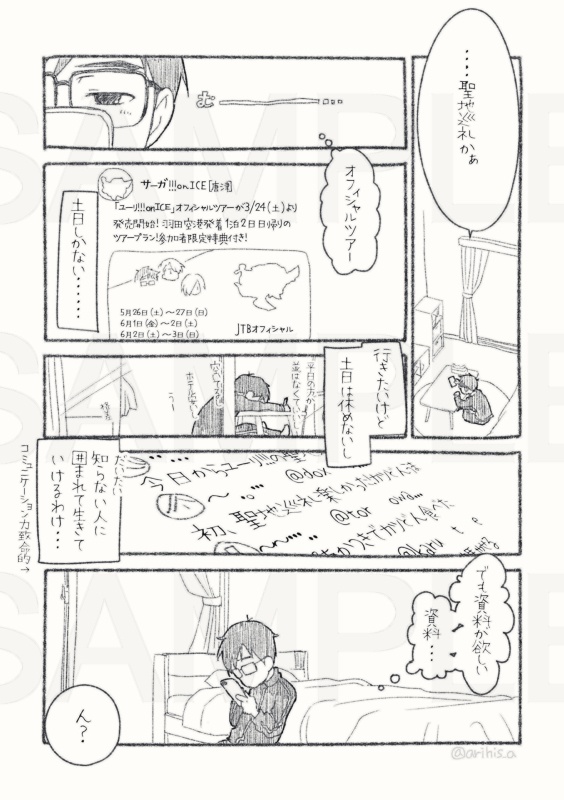 ・・・・聖地巡礼かぁ
む
オフィシャルツアー
サーガ!!!on ICE［唐津］
「ユーリ!!!on ICE」オフィシャルツアーが3/24(土)より
発売開始！羽田空港発着1泊2日日帰りの
ツアープラン！参加者限定特典付き！
5月26日(土)～27日(日)
6月1日(金)～2日(土)
6月2日(土)～3日(日)
JTBオフィシャル
土日しかない・・・・・・
行きたいけど
土日は休めないし
平日の方が
うー
今日からユーリ!!!の聖
初、聖地巡礼楽しかった
@tar
@karu
だいたい
知らない人に
囲まれて生きて
いけるわけ・・・
コミュニケーション力致命的→
でも資料が欲しい
資料・・・
ん？
@arihis_a
SAMPLE